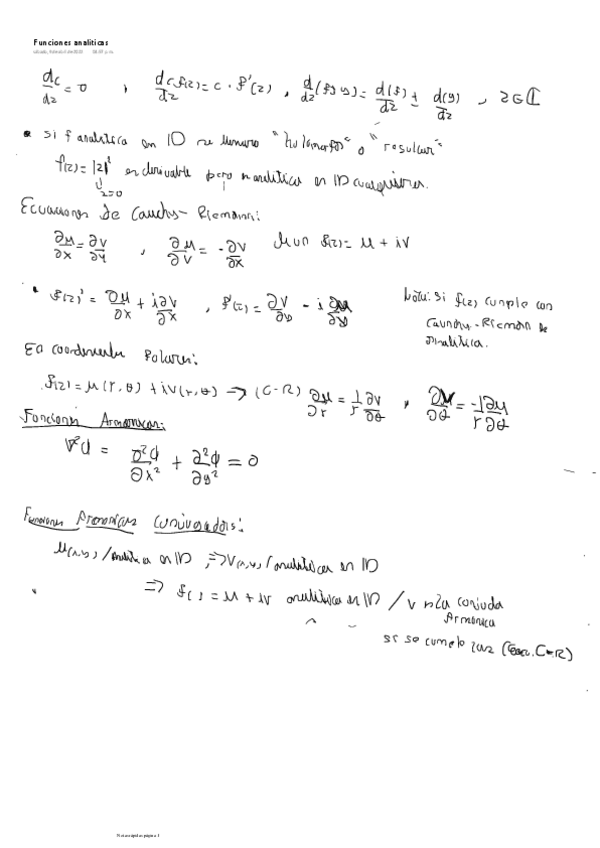 Funciones analíticas
dc/dz = 0 , d/dz c f(z) = c · f'(z) , d/dz (f ± g) = d(f)/dz ± d(g)/dz , z ∈ ℂ
• si f analítica en ID se llama "holomorfa" o "regular"
f(z) = |z|² es derivable pero n analítica en ID cualquiera.
z=0
Ecuaciones de Cauchy - Riemann:
∂u/∂x = ∂v/∂y , ∂u/∂v = -∂v/∂x f(z) = u + iv
• f(z)' = ∂u/∂x + i∂v/∂x , f'(z) = ∂v/∂y - i ∂u/∂y
Nota: si f(z) cumple con
Cauchy-Rieman es
analítica.
En coordenadas Polares:
f(z) = u(r, θ) + iv(r, θ) → (C-R) ∂u/∂r = 1/r ∂v/∂θ ,
Funciones Armonicas:
∇²φ = ∂²φ/∂x² + ∂²φ/∂y² = 0
Funciones Armonicas conjugadas:
u(x,y) / analítica en ID , ⇒ v(x,y) / analítica en ID
⇒ f( ) = u + iv analítica en ID / v es la
Armónica
si se cumple las (Ecu. C-R)
Notas rápidas página 1